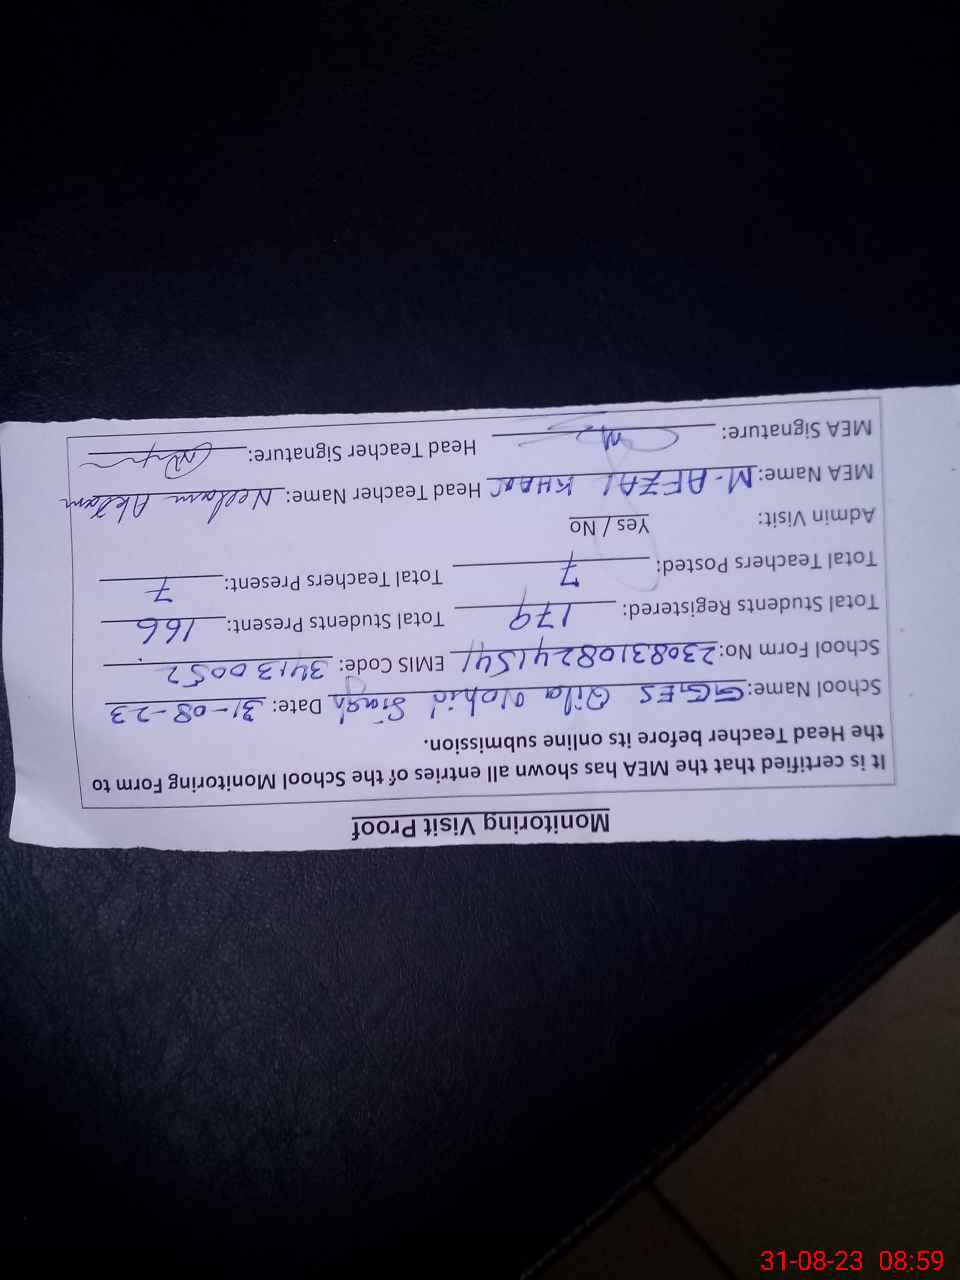 Monitoring Visit Proof
It is certified that the MEA has shown all entries of the School Monitoring Form to
the Head Teacher before its online submission.
School Name: GGES Qila Singh Date: 31-08-23
School Form No: 23083108241541 EMIS Code: 34130052
Total Students Registered: 179 Total Students Present: 166
Total Teachers Posted: 7 Total Teachers Present: 7
Admin Visit: Yes / No
MEA Name: M-AFZAL KHAN Head Teacher Name: Neelam Aktam
MEA Signature: Head Teacher Signature:
31-08-23 08:59